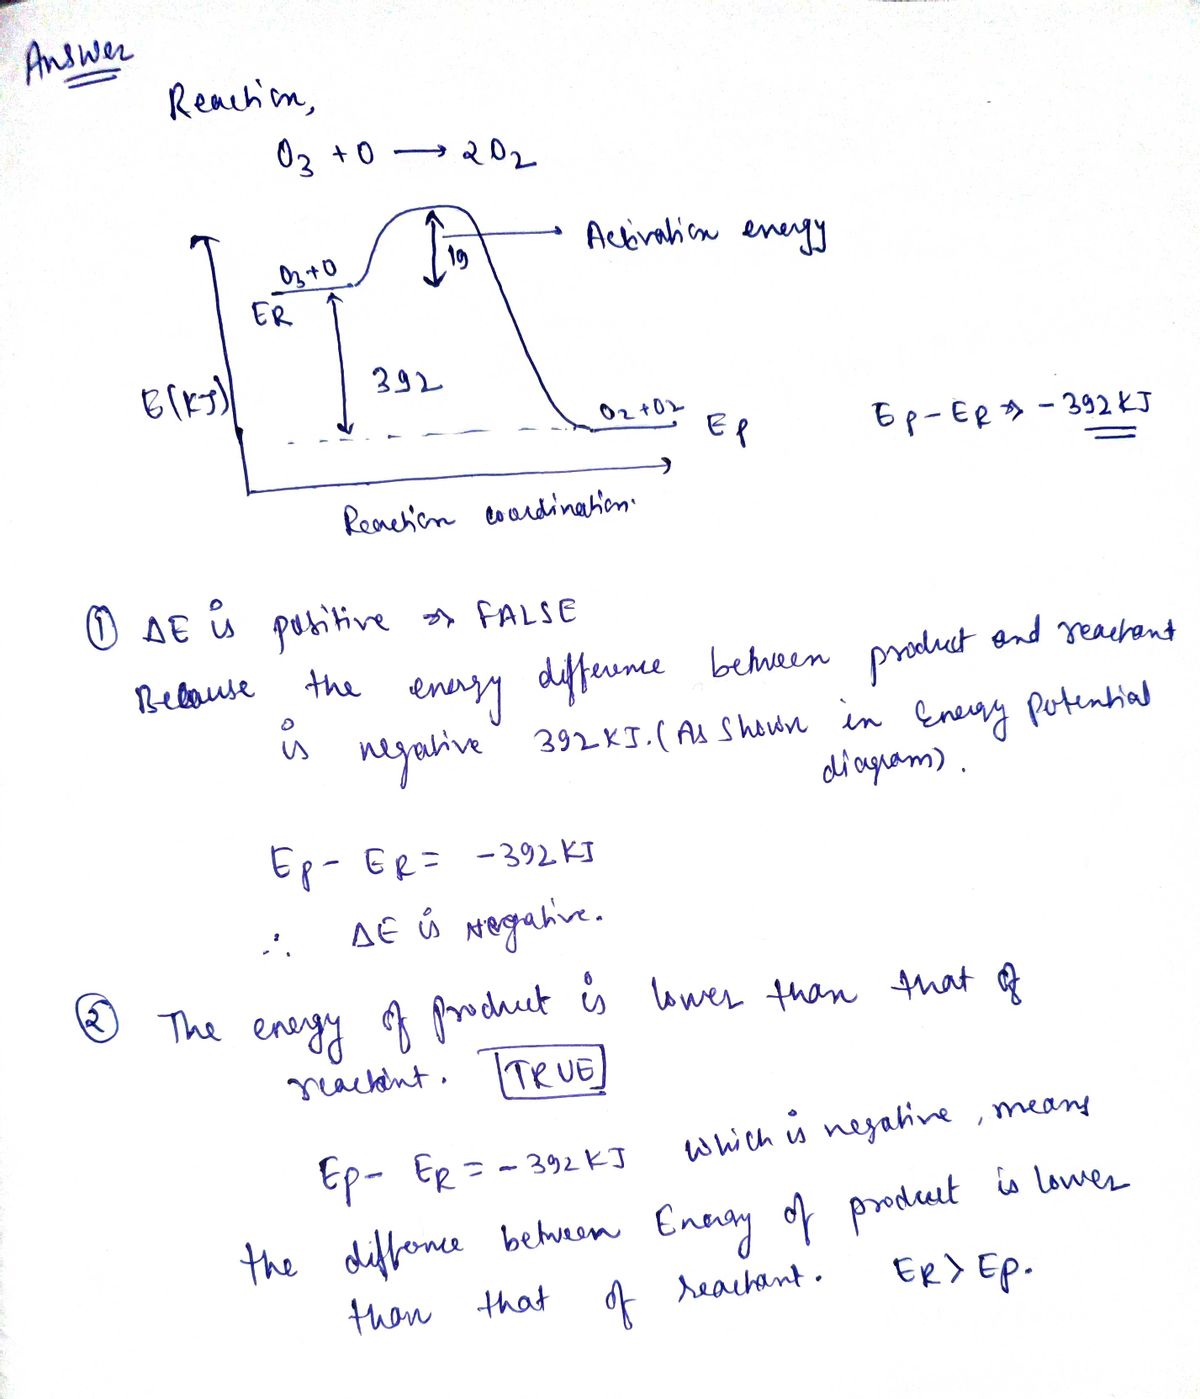 Answer
Reaction,
O3 + O → 2O2
19 → Activation energy
O3+O
ER
392
E(KJ)
O2+O2
Ep
Ep-ER ⇒ -392KJ
Reaction coordination.
① ΔE is positive ⇒ FALSE
Because the energy difference between product and reactant
is negative 392KJ. (As Shown in Energy Potential
diagram).
Ep - ER = -392KJ
∴ ΔE is Negative.
② The energy of product is lower than that of
reactant. TRUE
Ep - ER = -392KJ which is negative, means
the differnce between Energy of product is lower
than that of reactant. ER > Ep.